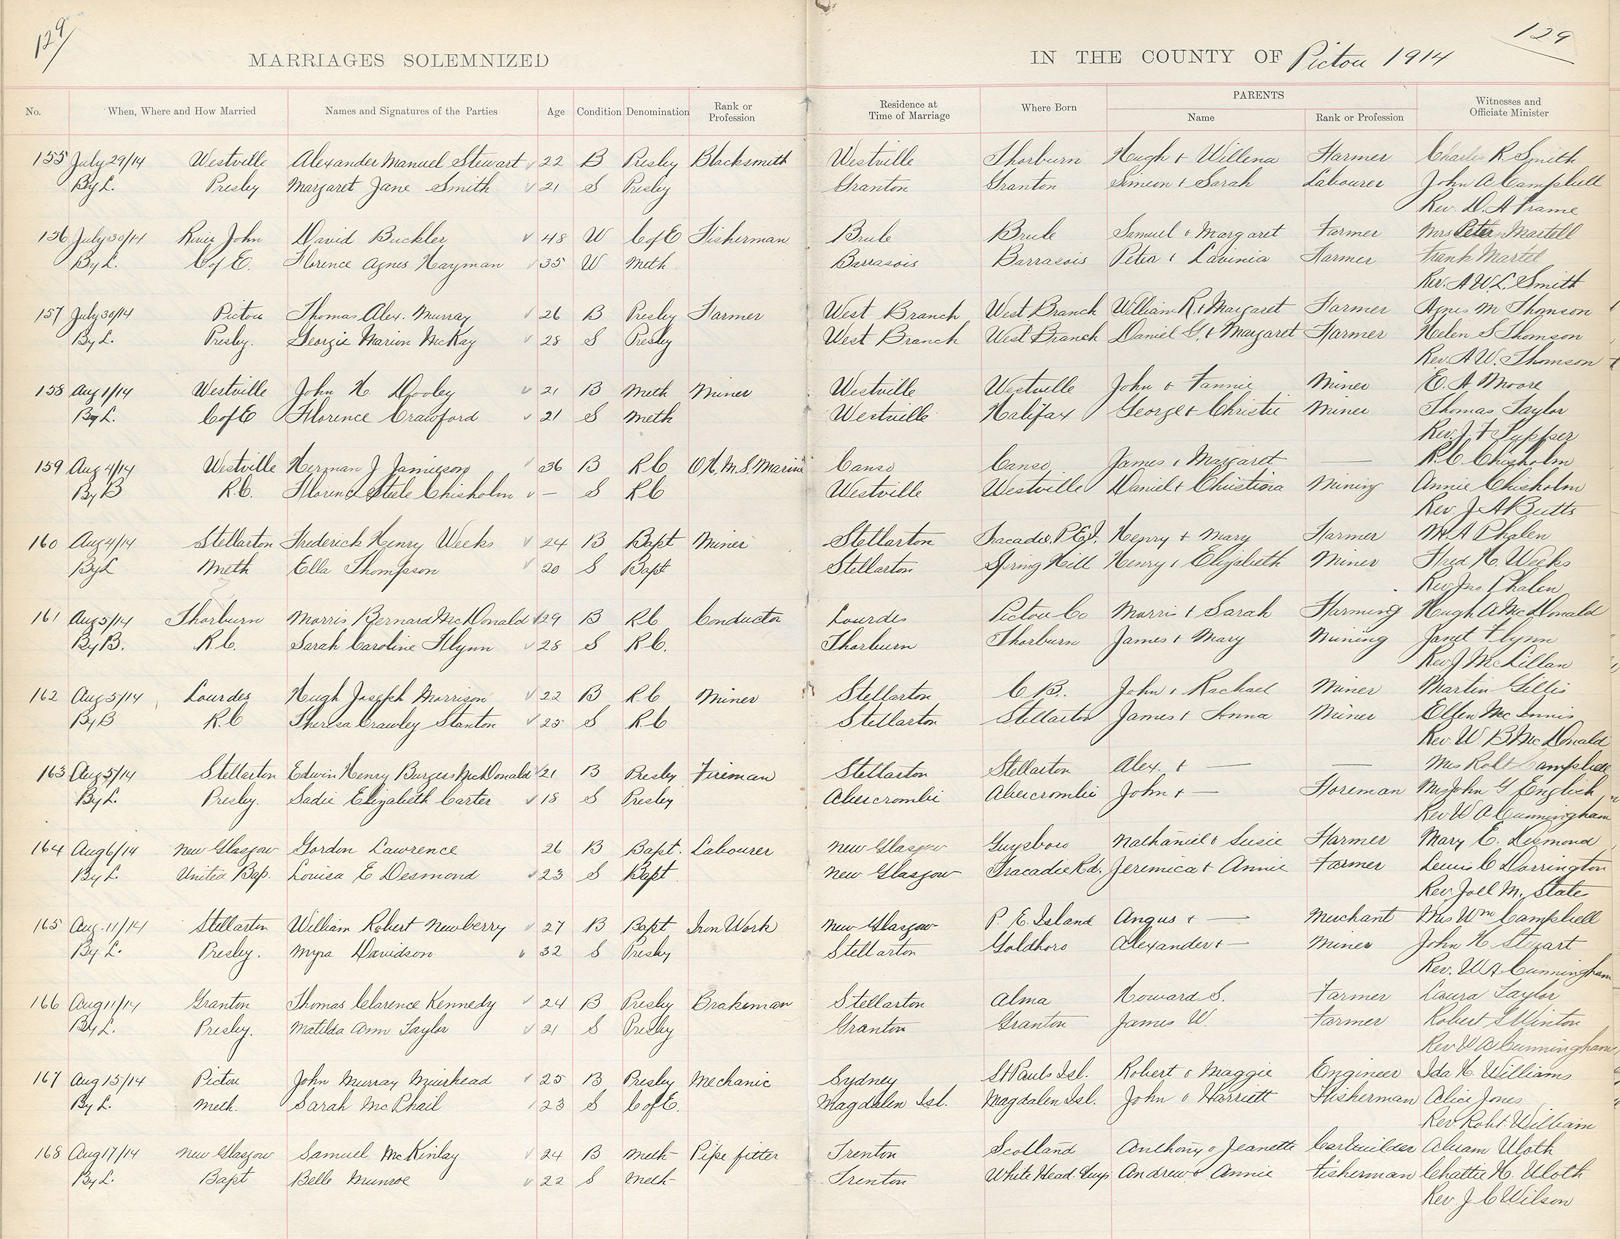 129
129
MARRIAGES SOLEMNIZED IN THE COUNTY OF Pictou 1914
No. When, Where and How Married Names and Signatures of the Parties Age Condition Denomination Rank or Profession Residence at Time of Marriage Where Born PARENTS Name Rank or Profession Witnesses and Officiate Minister
155 July 29/14 Westville Alexander Manuel Stewart 22 B Presby Blacksmith Westville Thorburn Hugh & Willena Farmer Charles R. Smith
By L. Presby Margaret Jane Smith 21 S Presby Granton Granton Simeon & Sarah Labourer John A Campbell
Rev. D. A Frame
156 July 30/14 River John David Buckler 48 W C of E Fisherman Brule Brule Samuel & Margaret Farmer Mrs Peter Martell
By L. C of E. Florence Agnes Hayman 35 W Meth Barrasois Barrasois Peter & Lavinia Farmer Frank Martel
Rev. A W. L. Smith
157 July 30/14 Pictou Thomas Alex. Murray 26 B Presby Farmer West Branch West Branch William R. & Margaret Farmer Agnes M Thomson
By L. Presby. Georgie Marion McKay 28 S Presby West Branch West Branch Daniel G. & Margaret Farmer Helen S Thomson
Rev. A W. Thomson
158 Aug 1/14 Westville John H Dooley 21 B Meth Miner Westville Westville John & Fannie Miner E. A Moore
By L. C of E Florence Crawford 21 S Meth Westville Halifax George & Christie Miner Thomas Taylor
Rev. J F Tupper
159 Aug 4/14 Westville Herman J Jamieson 36 B R C O H. M. S. Marine Canso Canso James & Margaret — R. C Chisholm
By B R.C. Florence Steele Chisholm — S R C Westville Westville Daniel & Christiana Mining Annie Chisholm
Rev J A Butts
160 Aug 4/14 Stellarton Frederick Henry Weeks 24 B Bapt Miner Stellarton Tracadie P.E.I. Henry & Mary Farmer M. A Phalen
By L Meth Ella Thompson 20 S Bapt Stellarton Spring Hill Henry & Elizabeth Miner Fred H. Weeks
Rev Jas Phalen
161 Aug 5/14 Thorburn Morris Bernard McDonald 29 B R C Conductor Lourdes Pictou Co Morris & Sarah Farming Hugh A McDonald
By B. R C. Sarah Caroline Flynn 28 S R C. Thorburn Thorburn James & Mary Mining Janet Flynn
Rev J McLillan
162 Aug 5/14 Lourdes Hugh Joseph Morrison 22 B R C Miner Stellarton C B. John & Rachael Miner Martin Gillis
By B R C Theresa Crawley Stanton 25 S R C Stellarton Stellarton James & Anna Miner Ellen McInnis
Rev W B McDonald
163 Aug 5/14 Stellarton Edwin Henry Burgess McDonald 21 B Presby Fireman Stellarton Stellarton Alex. & — — Mrs Robt Campbell
By L. Presby. Sadie Elizabeth Carter 18 S Presby Abercrombie Abercrombie John & — Foreman Mrs John G English
Rev W A Cunningham
164 Aug 6/14 New Glasgow Gordon Lawrence 26 B Bapt. Labourer New Glasgow Guysboro Nathaniel & Susie Farmer Mary E. Desmond
By L. United Bap. Louisa E Desmond 23 S Bapt New Glasgow Tracadie Rd. Jeremica & Annie Farmer Lewis C Dorrington
Rev Joell M. State
165 Aug. 11/14 Stellarton William Robert Newberry 27 B Bapt Iron Work New Glasgow P E Island Angus & — Muchant Mrs Wm Campbell
By L. Presby. Myra Davidson 32 S Presby Stellarton Goldboro Alexander & — Miner John H Stewart
Rev. W A Cunningham
166 Aug 11/14 Granton Thomas Clarence Kennedy 24 B Presby Brakeman Stellarton Alma Howard S. Farmer Laura Taylor
By L. Presby. Matilda Ann Taylor 21 S Presby Granton Granton James W. Farmer Robert S Winton
Rev W A Cunningham
167 Aug 15/14 Pictou John Murray Muirhead 25 B Presby Mechanic Sydney St Pauls Isl. Robert & Maggie Engineer Ida H. Williams
By L. Meth. Sarah McPhail 23 S C of E. Magdalen Isl. Magdalen Isl. John & Harriett Fisherman Alice Jones
Rev Robt William
168 Aug 17/14 New Glasgow Samuel McKinlay 24 B Meth Pipe fitter Trenton Scotland Anthony & Jeanette Carbuilder Alvam Uloth
By L. Bapt Belle Munroe 22 S Meth Trenton White Head Guys Andrew & Annie Fisherman Chattie H. Uloth
Rev J C Wilson